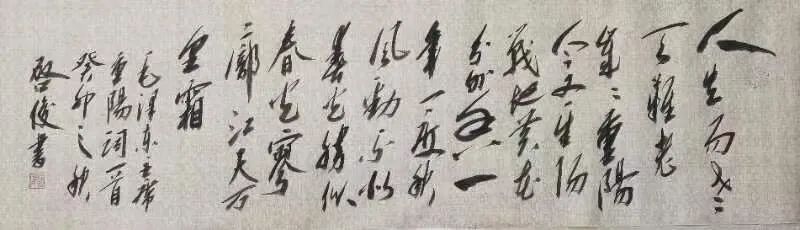 人生易老
天難老
歲歲重陽
今又重陽
戰地黃花
分外香一
年一度秋
風勁不似
春光勝似
春光寥
廓江天万
里霜
毛澤東主席
重陽詞一首
癸卯之秋
啟俊書